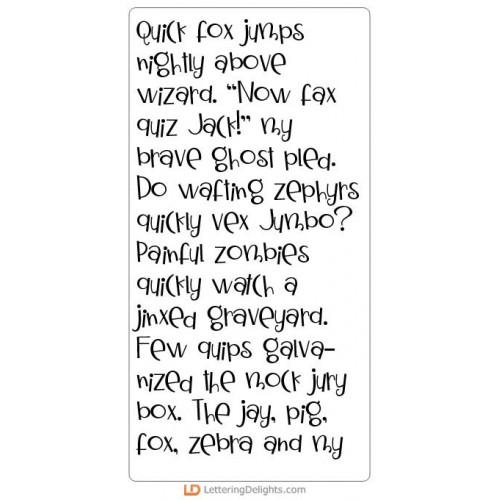 Quick fox jumps
nightly above
wizard. “Now fax
quiz Jack!” my
brave ghost pled.
Do wafting zephyrs
quickly vex Jumbo?
Painful zombies
quickly watch a
jinxed graveyard.
Few quips galva-
nized the mock jury
box. The jay, pig,
fox, zebra and my
LD LetteringDelights.com